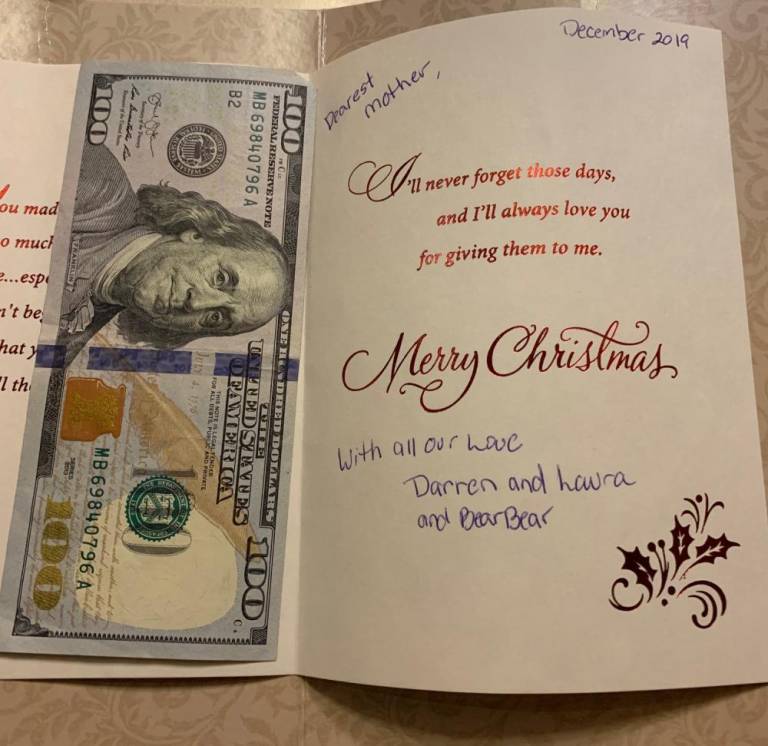 You mad
o much
e...esp
n't be
hat y
ll th
100
FEDERAL RESERVE NOTE
MB 69840796 A
B2
100
FRANKLIN
ONE HUNDRED DOLLARS
THE
UNITED STATES
OF AMERICA
THIS NOTE IS LEGAL TENDER
FOR ALL DEBTS, PUBLIC AND PRIVATE
MB 69840796 A
100
100
December 2019
Dearest
mother,
I'll never forget those days,
and I'll always love you
for giving them to me.
Merry Christmas
With all our Love
Darren and Laura
and BearBear